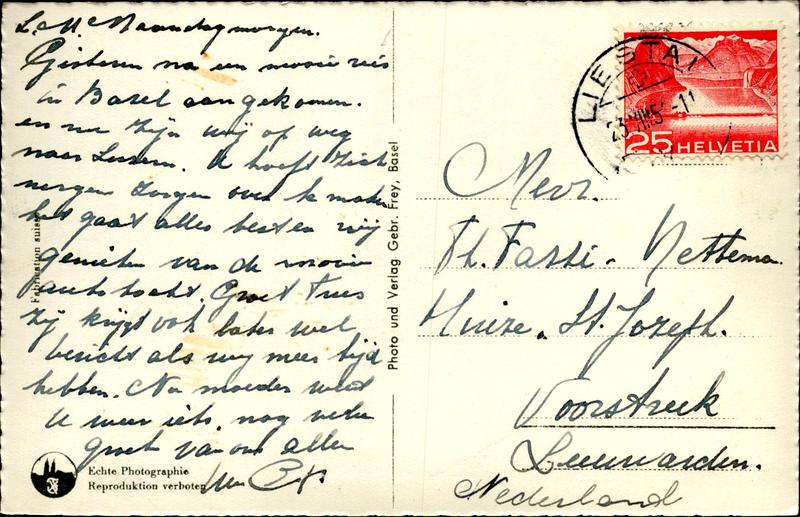 L. M. Maandagmorgen.
Gisteren na een mooie reis
in Basel aangekomen.
en nu zijn wij op weg
naar Luzern. U hoeft zich
nergens zorgen over te maken
het gaat alles best en wij
genieten van de mooie
autotocht. Groet Truus
zij krijgt ook later wel
bericht als wij meer tijd
hebben. Nu moeder weet
U weer iets, nog vele
groet van ons allen
Fabrication suisse
Echte Photographie
Reproduktion verboten
Photo und Verlag Gebr. Frey, Basel
LIESTAL
25 HELVETIA
Mevr.
Th. Fassi-Nettema.
Huize St. Jozeph.
Voorstreek
Leeuwarden.
Nederland